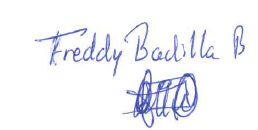 Freddy Badilla B